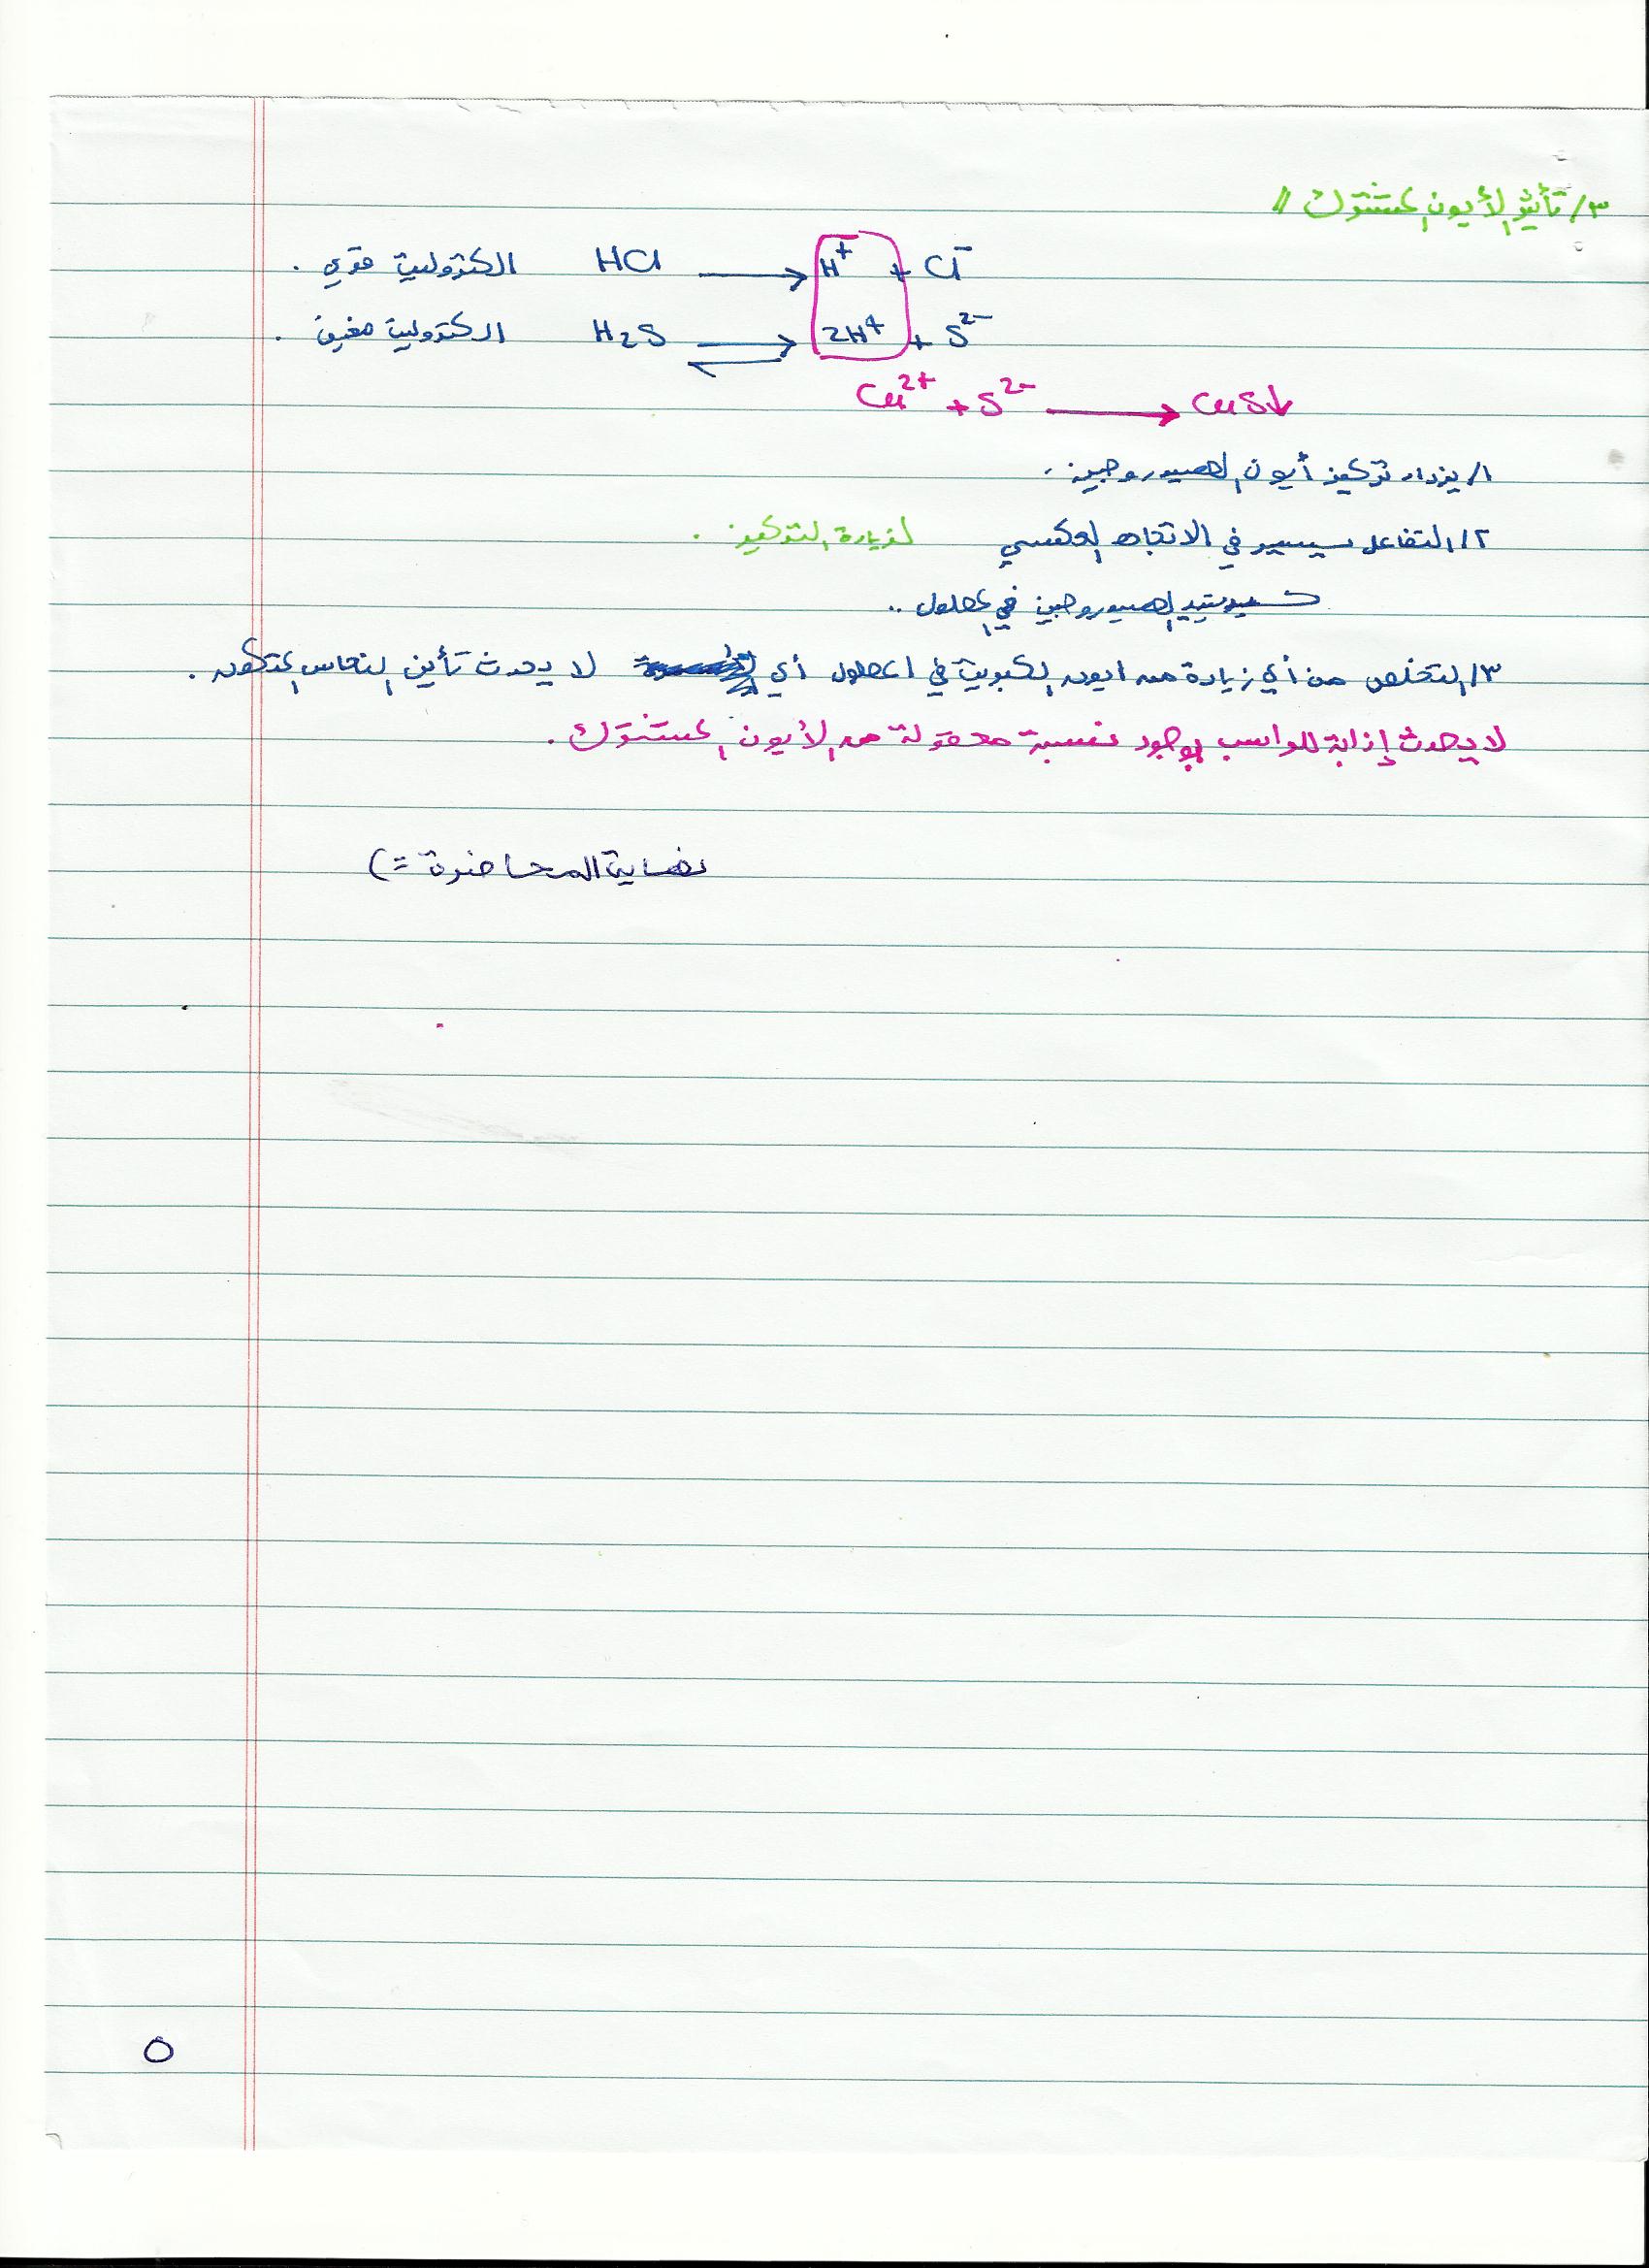 ٣/ تأثير الأيون المشترك //
HCl ⟶ H⁺ + Cl⁻ الكتروليت قوي .
H₂S ⇌ 2H⁺ + S²⁻ الكتروليت ضعيف .
Cu²⁺ + S²⁻ ⟶ CuS↓
١/ يزداد تركيز أيون الهيدروجين .
٢/ التفاعل سيسير في الاتجاه العكسي لزيادة التركيز .
كبريتيد الهيدروجين في المحلول ..
٣/ التخلص من أي زيادة من ايون الكبريت في المحلول أي لا يحدث تأين النحاس المتكون .
لا يحدث إذابة للرواسب بوجود نسبة معقولة من الأيون المشترك .
نهاية المحاضرة =)
٥